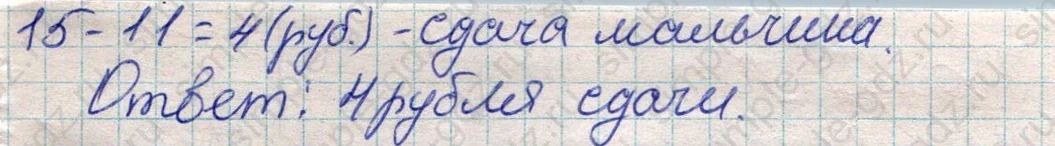 15 - 11 = 4 (руб.) - сдача мальчика.
Ответ: 4 рубля сдачи.